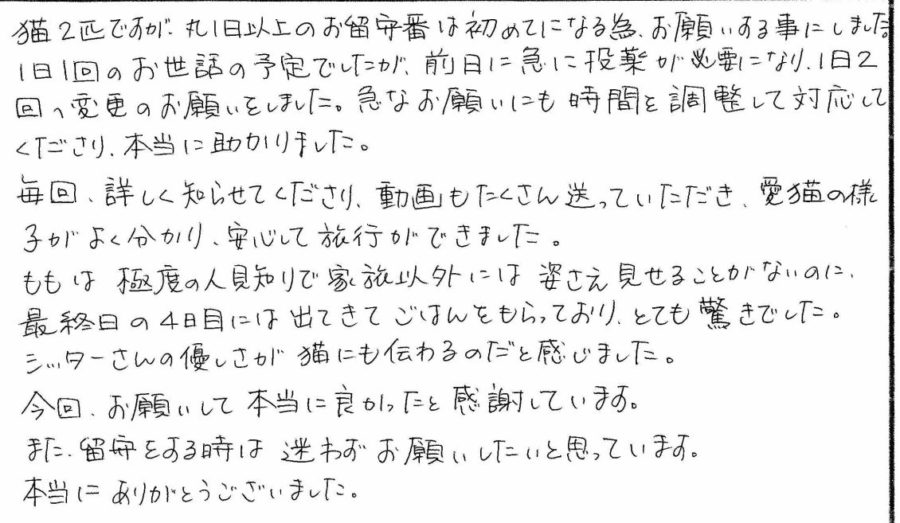 猫2匹ですが、丸1日以上のお留守番は初めてになる為、お願いする事にしました
1日1回のお世話の予定でしたが、前日に急に投薬が必要になり、1日2
回へ変更のお願いをしました。急なお願いにも時間を調整して対応して
くださり、本当に助かりました。
毎回、詳しく知らせてくださり、動画もたくさん送っていただき、愛猫の様
子がよく分かり、安心して旅行ができました。
ももは極度の人見知りで家族以外には姿さえ見せることがないのに、
最終日の4日目には出てきてごはんをもらっており、とても驚きでした。
シッターさんの優しさが猫にも伝わるのだと感じました。
今回、お願いして本当に良かったと感謝しています。
また、留守をする時は迷わずお願いしたいと思っています。
本当にありがとうございました。